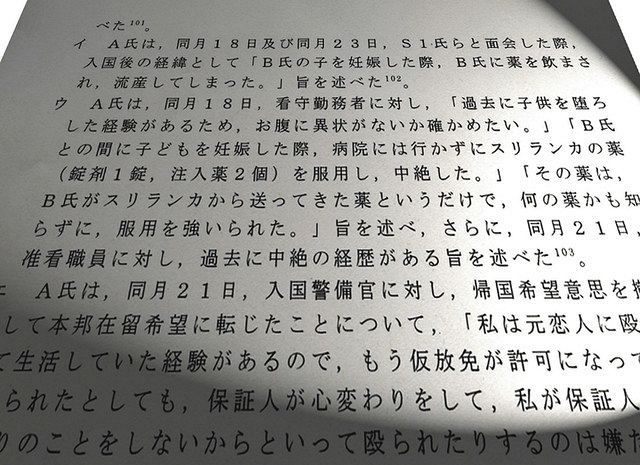 べた101。
イ　A氏は，同月18日及び同月23日，S1氏らと面会した際，
入国後の経緯として「B氏の子を妊娠した際，B氏に薬を飲まさ
れ，流産してしまった。」旨を述べた102。
ウ　A氏は，同月18，看守勤務者に対し，「過去に子供を堕ろ
した経験があるため，お腹に異状がないか確かめたい。」「B氏
との間に子どもを妊娠した際，病院には行かずにスリランカの薬
（錠剤1錠，注入薬2個）を服用し，中絶した。」「その薬は，
B氏がスリランカから送ってきた薬というだけで，何の薬かも知
らずに，服用を強いられた。」旨を述べ，さらに，同月21日，
准看職員に対し，過去に中絶の経歴がある旨を述べた103。
エ　A氏は，同月21日，入国警備官に対し，帰国希望意思を
して本邦在留希望に転じたことについて，「私は元恋人に殴
て生活していた経験があるので，もう仮放免が許可になって
られたとしても，保証人が心変わりをして，私が保証人
りのことをしないからといって殴られたりするのは嫌だ